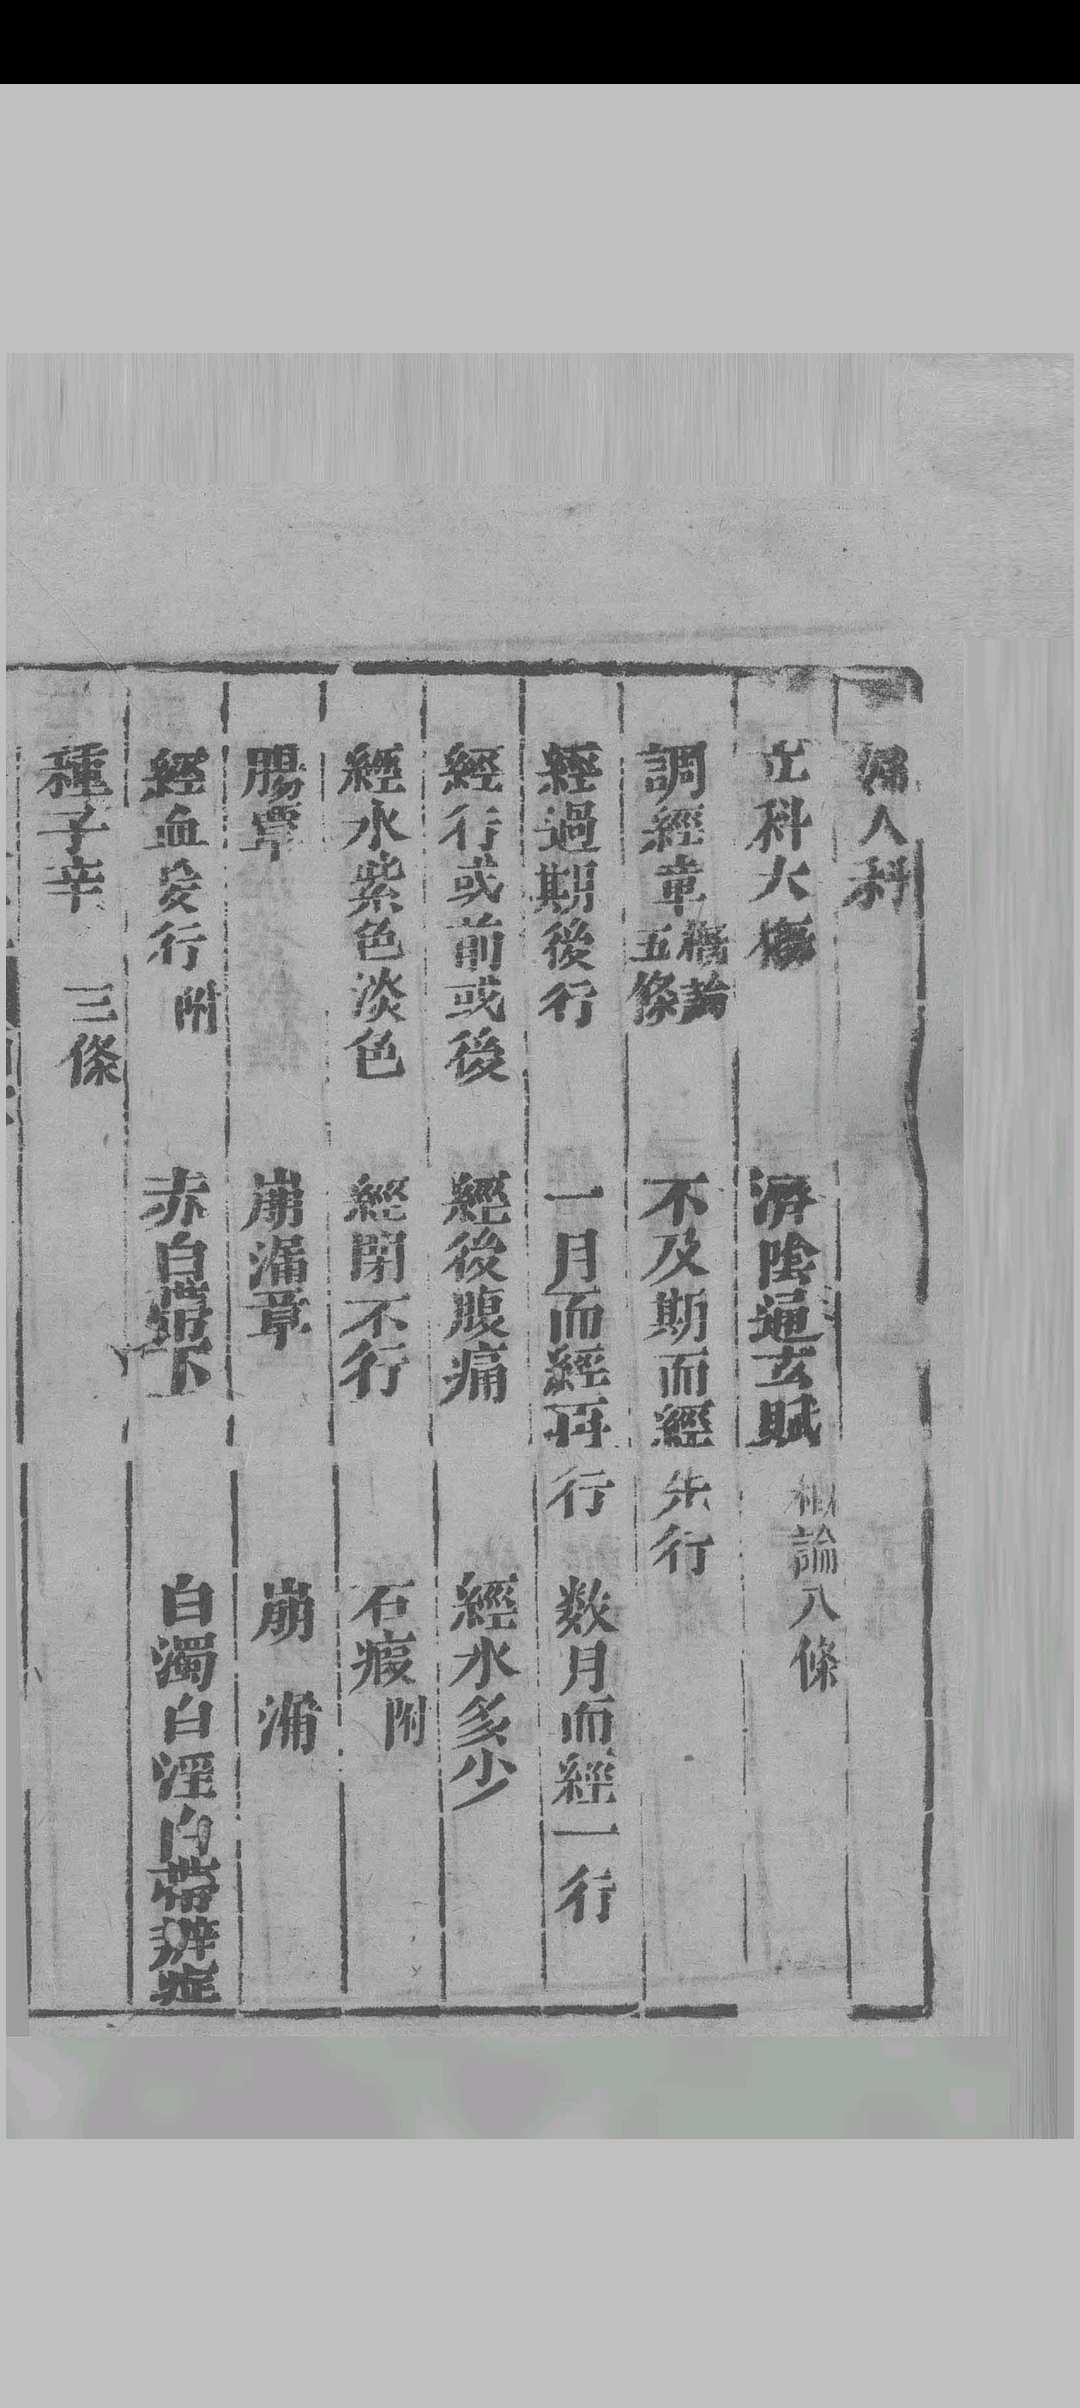 婦人科
立科大概 濟陰通玄賦 概論八條
調經章 概論五條 不及期而經先行
經過期後行 一月而經再行 数月而經一行
經行或前或後 經後腹痛 經水多少
經水紫色淡色 經閉不行 石瘕附
腸覃 崩漏章 崩漏
經血妄行附 赤白帶下 白濁白淫白帶辨症
種子章 三條